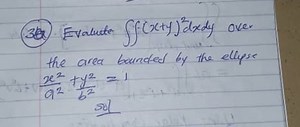 Evaluate ∬(x+y)²dxdy over
the area bounded by the ellipse
x²/a² + y²/b² = 1
sol